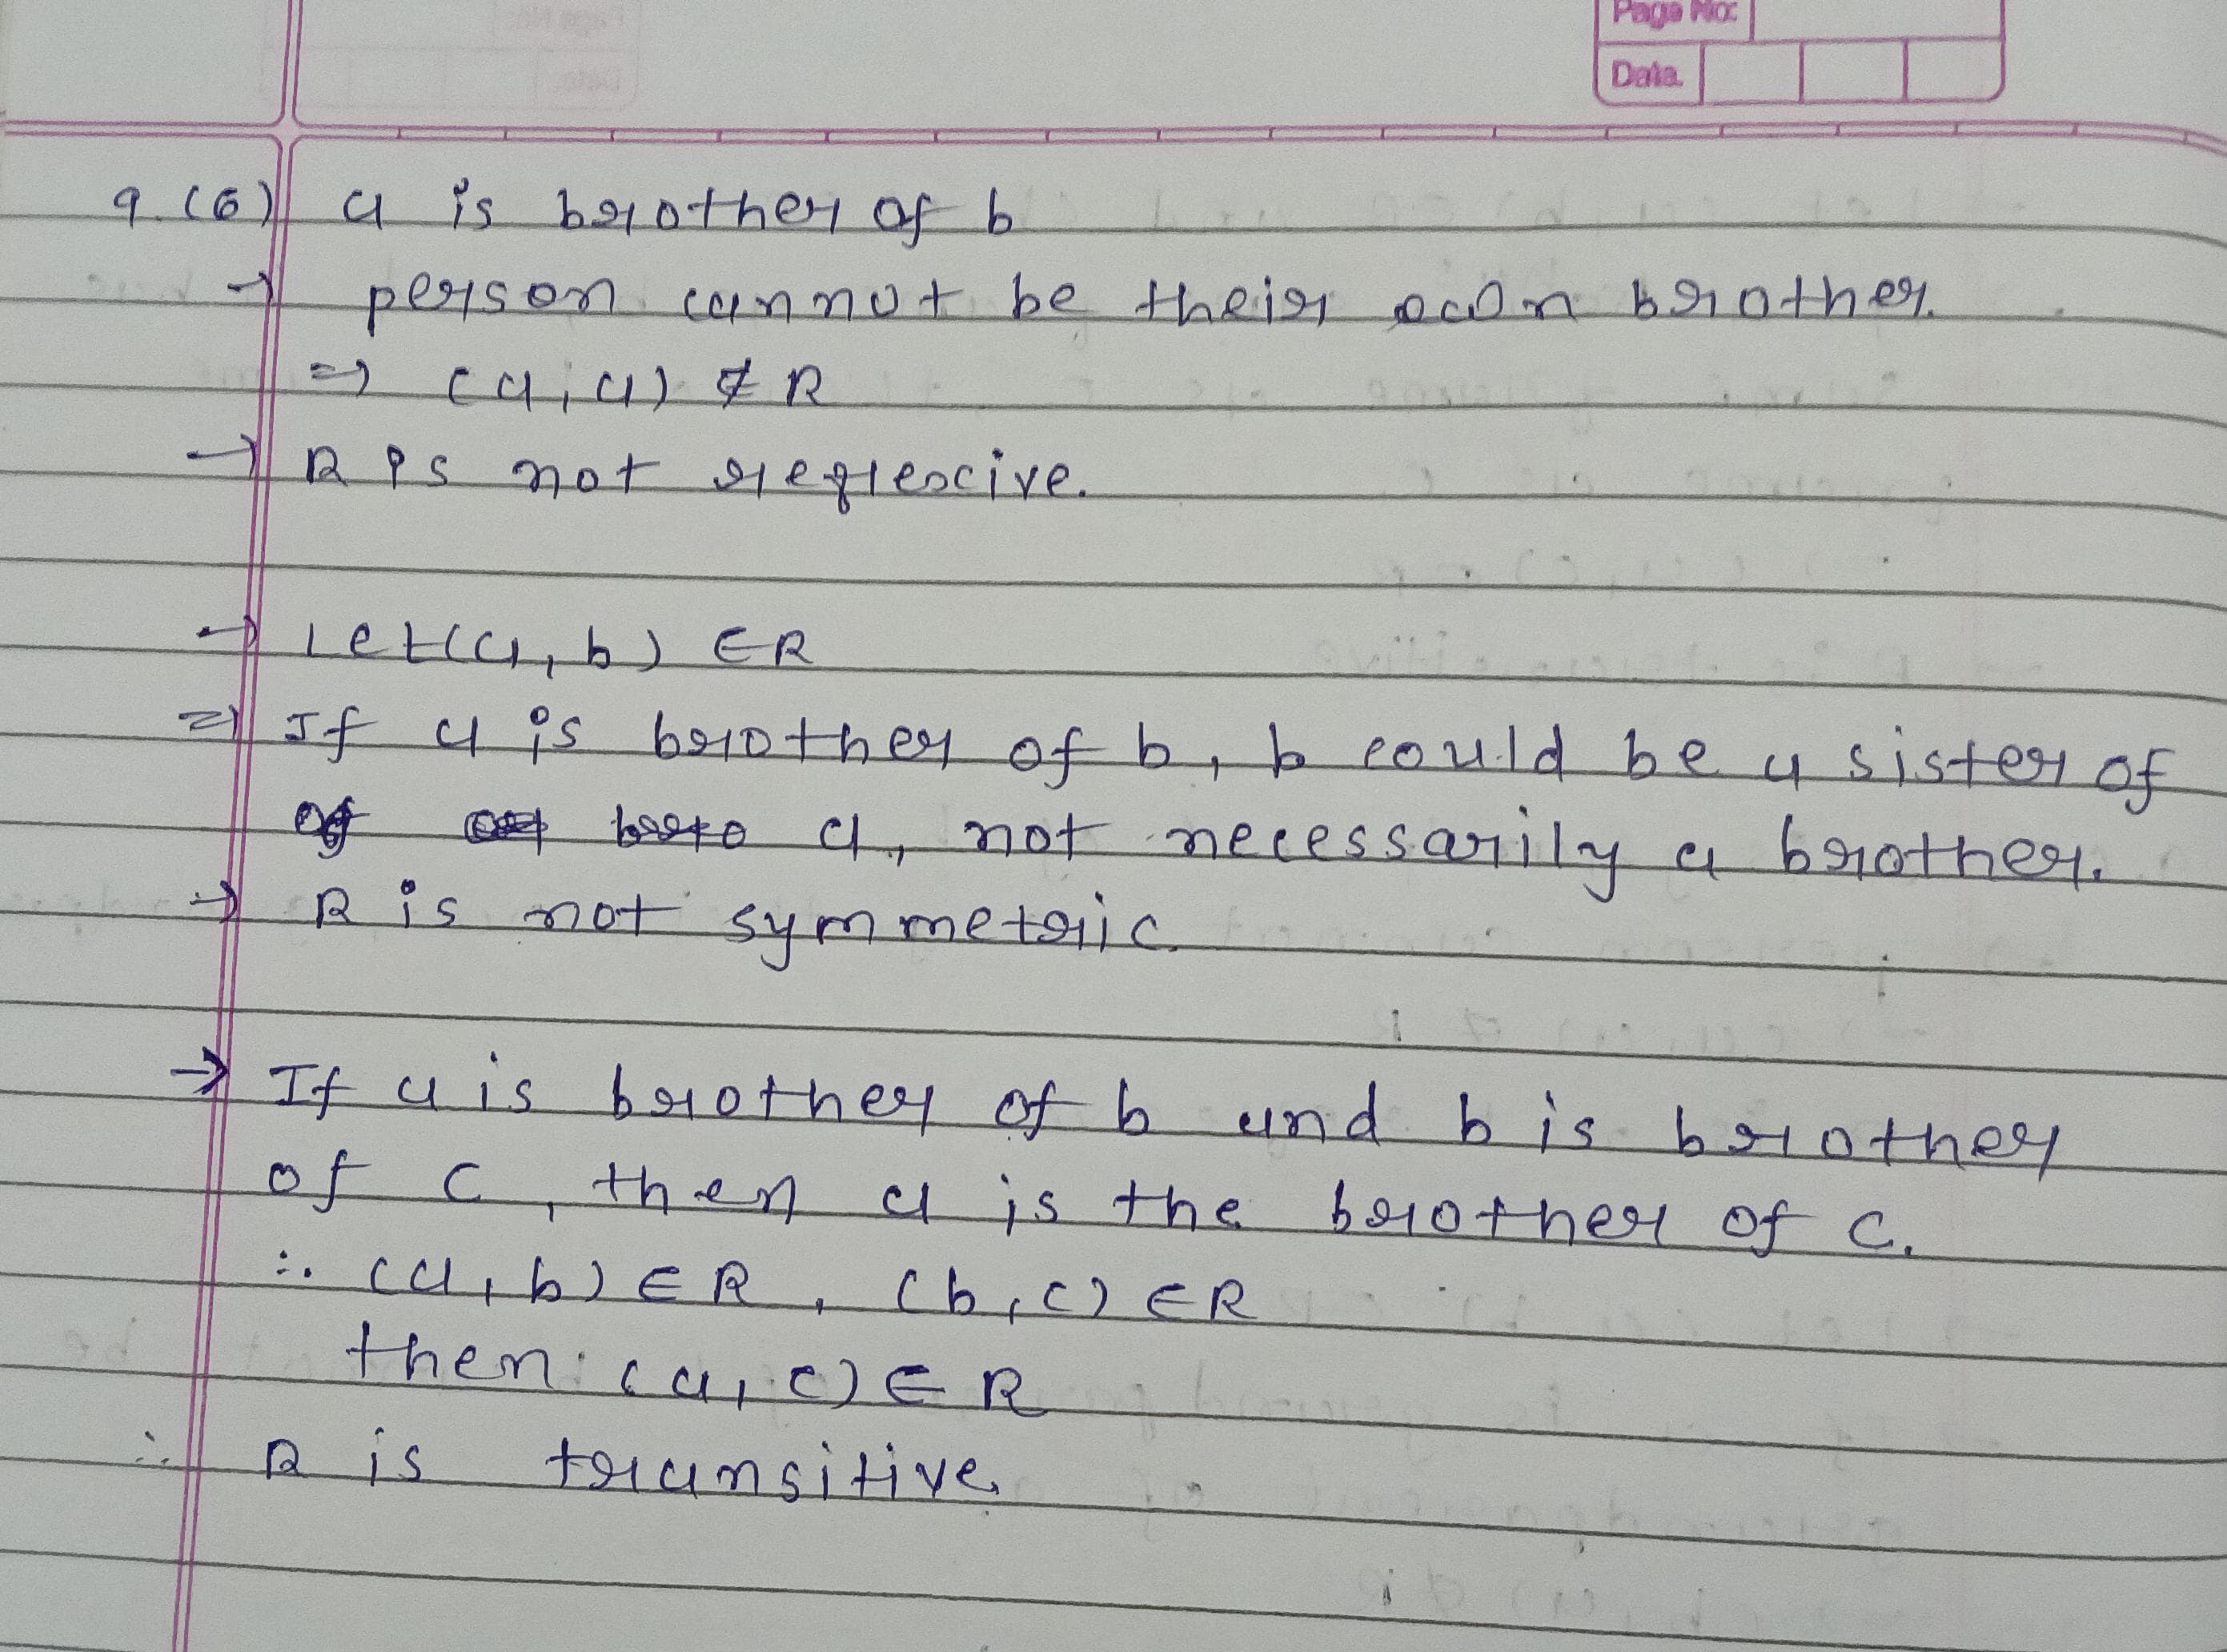 Page No:
Date.
9.(6) a is brother of b
→ person cannot be their own brother.
⇒ (a, a) ∉ R
→ R is not reflexive.
→ Let (a, b) ∈ R
⇒ If a is brother of b, b could be a sister of
a, not necessarily a brother.
→ R is not symmetric.
→ If a is brother of b and b is brother
of c, then a is the brother of c.
∴ (a, b) ∈ R, (b, c) ∈ R
then (a, c) ∈ R
∴ R is transitive.